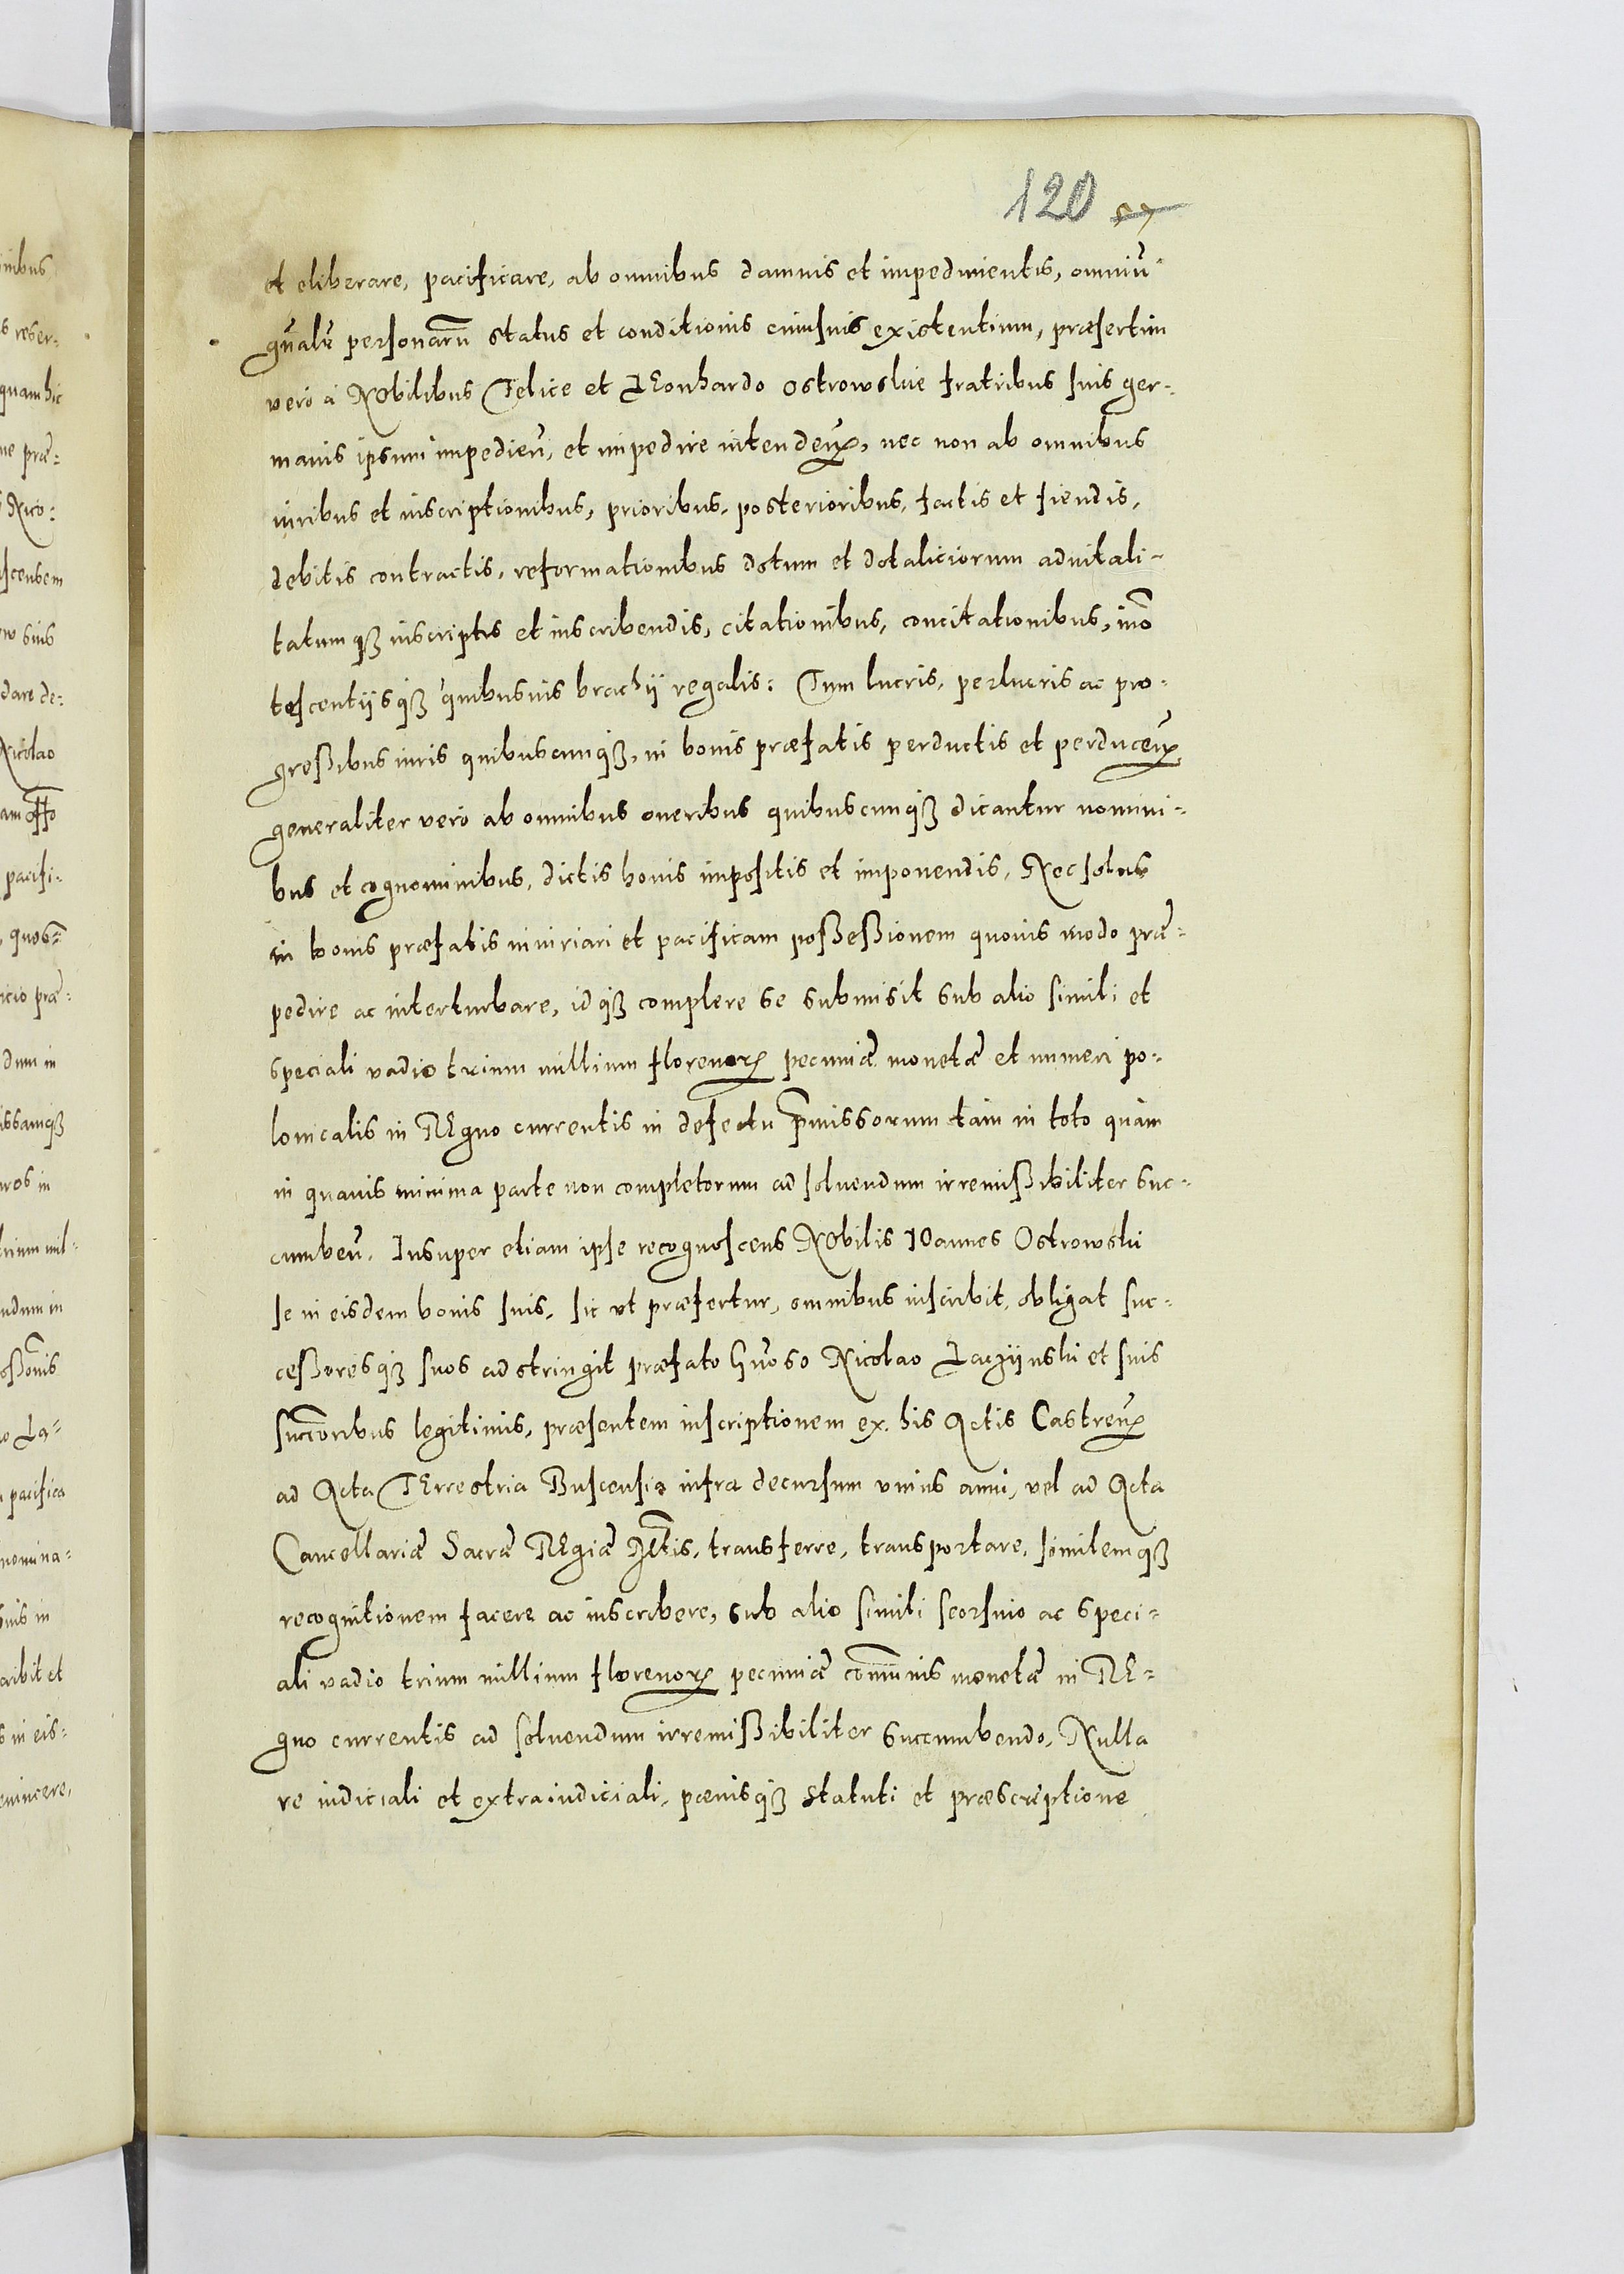 120 57
et eliberare, pacificare, ab omnibus damnis et impedimentis, omniū
gn̄aliū personarū status et conditionis cuiusuis existentium, præsertim
vero à NObilibus Felice et LEonhardo Ostrowskie fratribus suis ger-
manis ipsum impedien̄, et impedire intenden̄, nec non ab omnibus
iuribus et inscriptionibus, prioribus, posterioribus, factis et fiendis,
debitis contractis, reformationibus dotum et dotaliciorum aduitali-
tatumqȝ inscriptis et inscribendis, citationibus, concitationibus, inno
tescentijsqȝ quibusuis brachij regalis: Tum lucris, perlucris ac pro-
greßibus iuris quibuscunqȝ, in bonis præfatis perductis et perducen̄,
generaliter vero ab omnibus oneribus quibuscunqȝ dicantur nomini-
bus et cognominibus, dictis bonis impositis et imponendis, Nec solus
in bonis præfatis iniuriari et pacificam poßeßionem quouis modo præ-
pedire ac interturbare, idqȝ complere se submisit sub alio simili et
speciali vadio trium millium florenorꝝ pecuniæ monetæ et numeri po-
lonicalis in REgno currentis in defectu p̄missorum tàm in toto quàm
in quauis minima parte non completorum ad soluendum irremißibiliter suc-
cumben̄. Insuper etiam ipse recognoscens NObilis IOannes Ostrowski
se in eisdem bonis suis, sic vt præfertur, omnibus inscribit, obligat suc-
ceßoresqȝ suos adstringit præfato Gn̄oso Nicolao Laczijnski et suis
succ̄oribus legitimis, præsentem inscriptionem ex his Actis Castren̄
ad Acta TErrestria Buscensia infra decursum vnius anni, vel ad Acta
Cancellariæ Sacræ REgiæ Mtis, transferre, transportare, similemqȝ
recognitionem facere ac inscribere, sub alio simili seorsiuo ac speci-
ali vadio trium millium florenorꝝ pecuniæ com̄unis monetæ in RE-
gno currentis ad soluendum irremißibiliter succumbendo, Nulla
re iudiciali et extraiudiciali, pœnisqȝ statuti et præscriptione